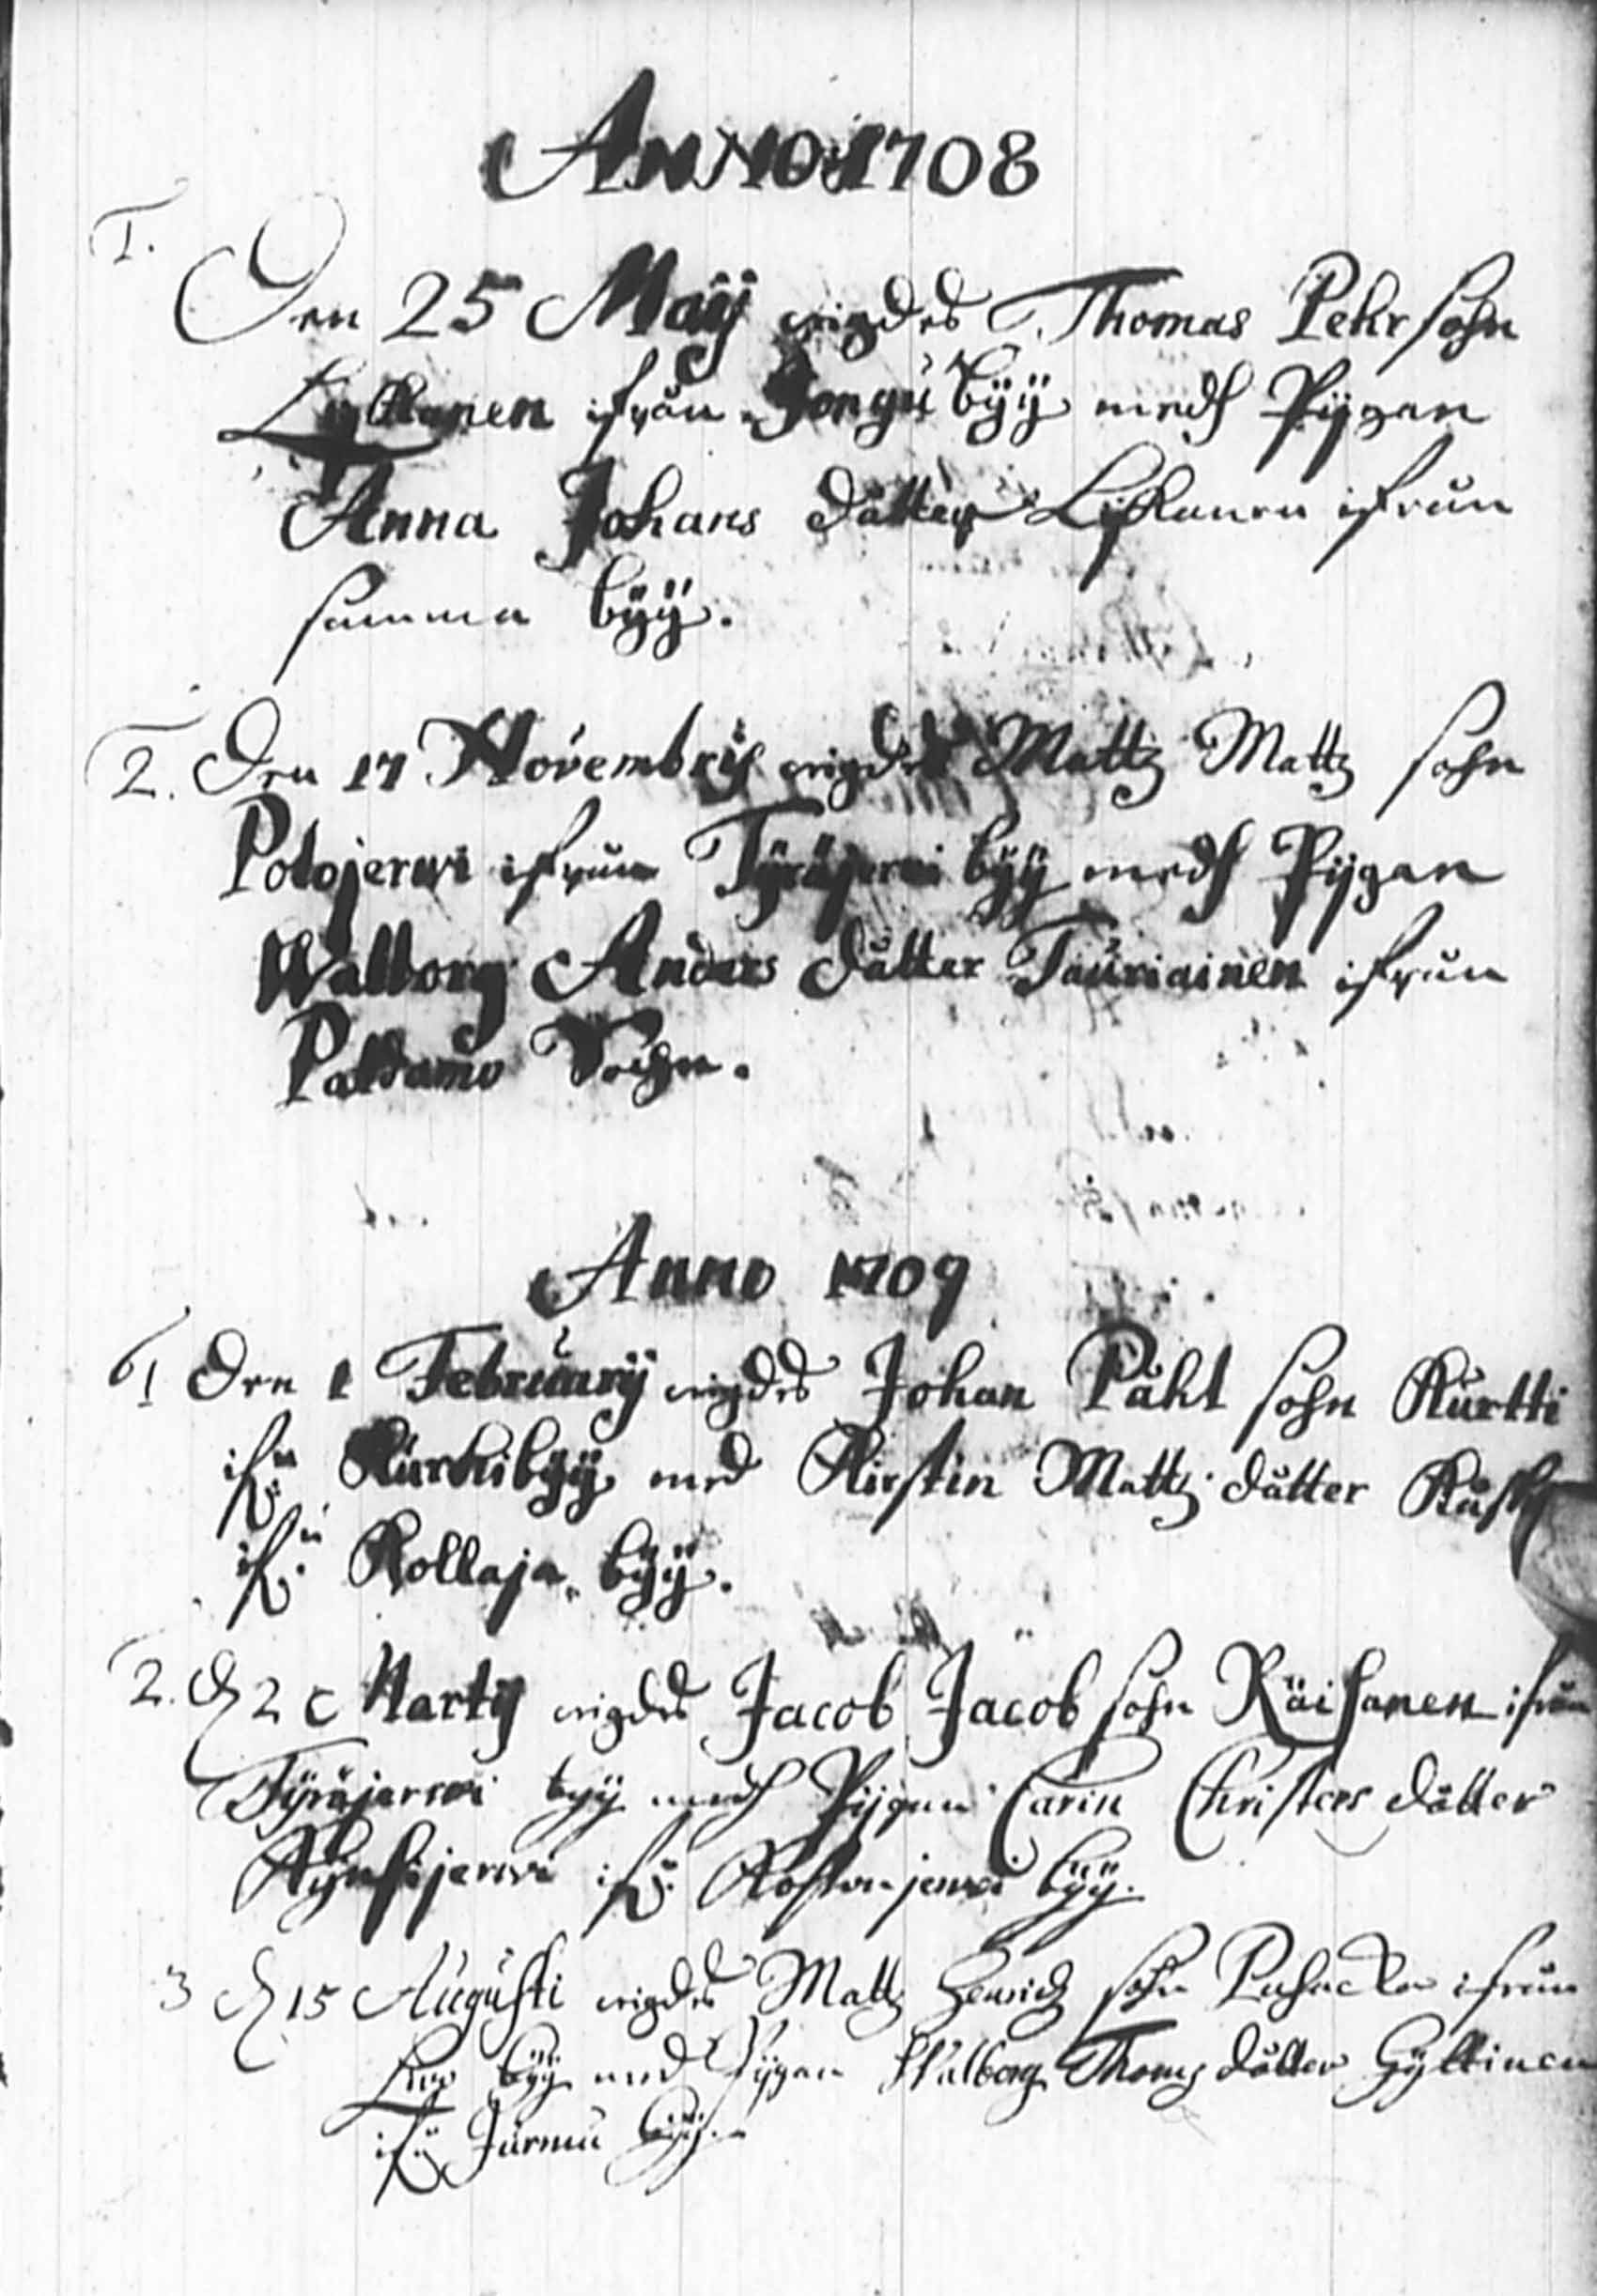 Anno 1708
1.
Den 25 Maÿ wigdes Thomas Pehr sohn
Lykkanen ifrån Jongu bÿÿ medh Pÿgan
Anna Johans dåtter Likanen ifrån
samma bÿÿ.
2. Den 17 Novembris wigdes Mattz Mattz sohn
Polojerwi ifrån Tÿräjerwi bÿÿ medh Pÿgan
Walborg Anders dåtter Tauriainen ifrån
Paldamo Sochn.
Anno 1709
1 Den 1 Februarij wigdes Johan Påhl sohn Kurtti
ifrå Kurkibÿÿ med Kirstin Mattz dåtter
ifrå Kollaja bÿÿ.
2. d 2 Martij wigdes Jacob Jacob sohn Räisanen ifrån
Tÿräjerwi bÿÿ medh Pÿgan Carin Christers dåtter
Kynsijerwi ifrå jerwi bÿÿ.
3 d 15 Augusti wigdes Mattz Henrich sohn ifrån
bÿÿ med Pÿgan Walborg Thoms dåtter Hÿttinen
ifrå Jurmu bÿÿ.